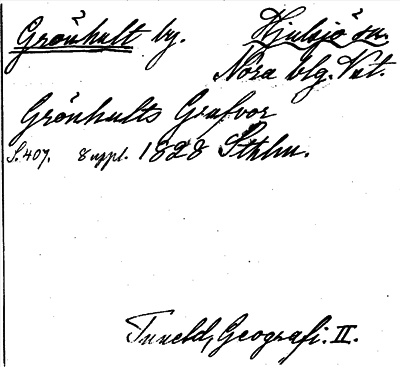 Grönhult by. Hjulsjö sn.
Nora blg. Vstl.
Grönhults Grufvor
S. 407. 8 uppl. 1828 Sthlm.
Tuneld, Geografi. II.